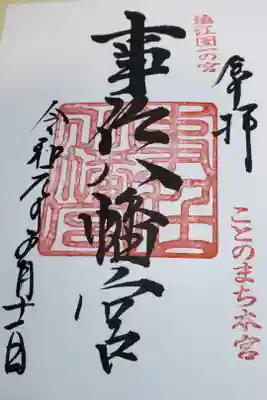 奉拝
ことのまち本宮
遠江国一の宮
事任八幡宮
令和元年五月十一日